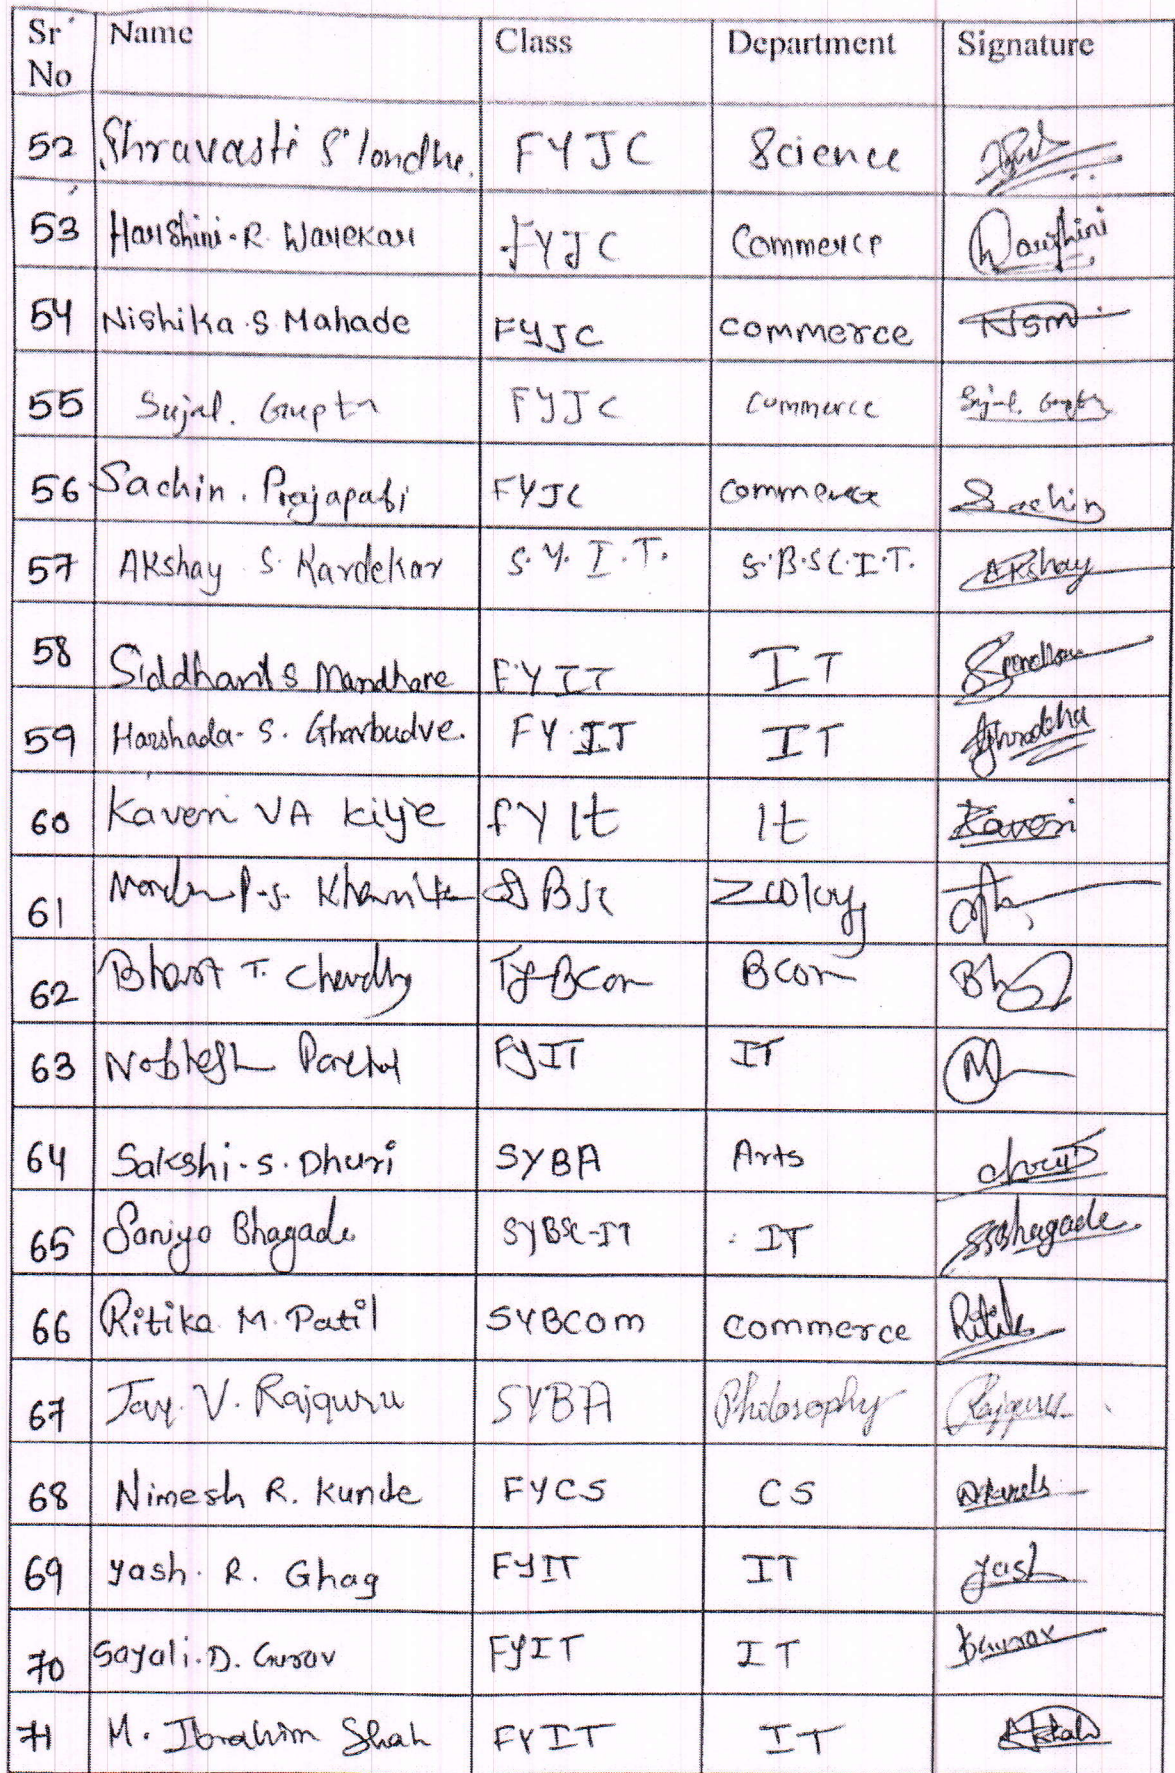 Sr No Name Class Department Signature
52 Shravasti S Londhe. FYJC Science
53 Harshini.R. Warekar FYJC Commerce Harshini
54 Nishika.S Mahade FYJC commerce NSM
55 Sujal. Gupta FYJC commerce Sujal. Gupta
56 Sachin. Prajapati FYJC commerce Sachin
57 Akshay S. Kardekar S.Y.I.T. S.B.SC.I.T. Akshay
58 Siddhant S Mandhare FYIT IT
59 Harshada. S. Gharbudve. FY.IT IT
60 Kaveri VA kiije FY It It Kaveri
61 BSc Zoology
62 Bharat T. TyBCom BCom
63 FYIT IT
64 Sakshi.S.Dhuri SYBA Arts
65 Saniya Bhagade SYBSC-IT IT SSBhagade
66 Ritika M. Patil SYBCOM commerce Ritika
67 Jay. V. Rajguru SYBA Philosophy Rajguru
68 Nimesh R. Kunde FYCS CS
69 Yash. R. Ghag FYIT IT Yash
70 Sayali.D. Gurav FYIT IT
71 M. Ibrahim Shah FYIT IT